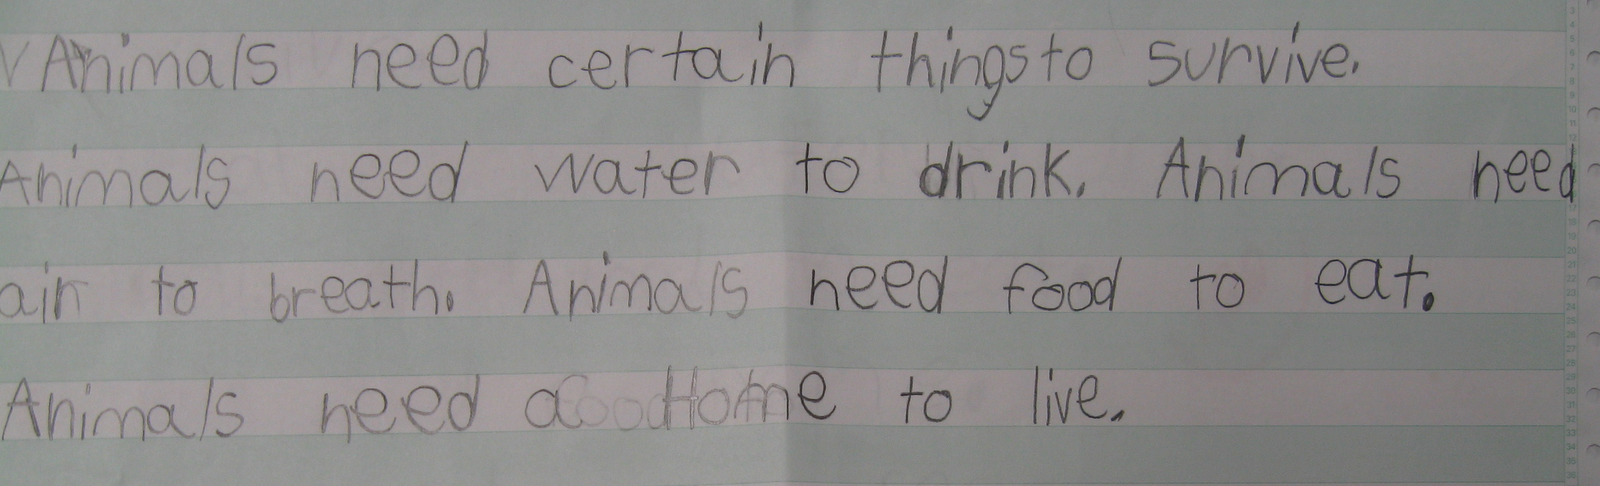 Animals need certain things to survive.
Animals need water to drink. Animals need
air to breath. Animals need food to eat.
Animals need a Home to live.